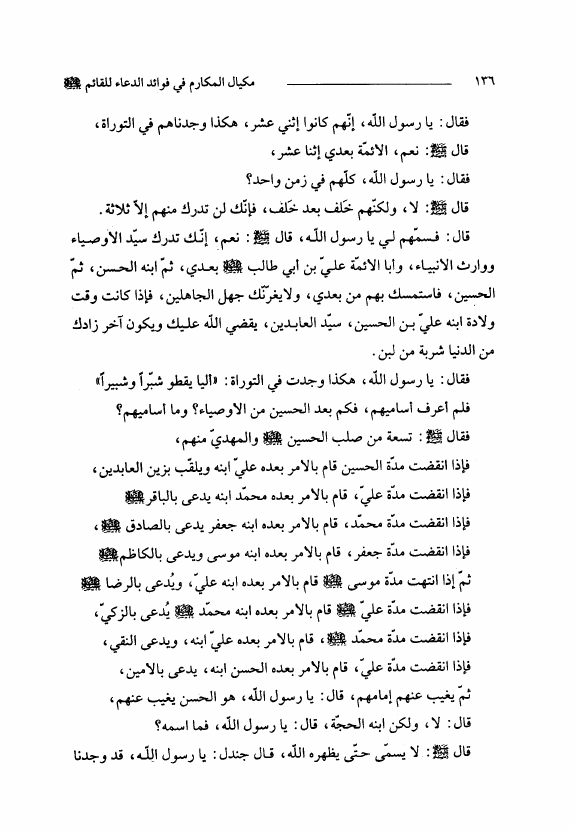 ١٣٦ مكيال المكارم في فوائد الدعاء للقائم ﷺ
فقال: يا رسول اللّه، إنّهم كانوا إثني عشر، هكذا وجدناهم في التوراة،
قال ﷺ: نعم، الائمّة بعدي إثنا عشر،
فقال: يا رسول اللّه، كلّهم في زمن واحد؟
قال ﷺ: لا، ولكنّهم خَلف بعد خَلف، فإنّك لن تدرك منهم إلاّ ثلاثة.
قال: فسمّهم لي يا رسول اللّه، قال ﷺ: نعم، إنّك تدرك سيّد الأوصياء
ووارث الانبياء، وأبا الائمّة عليّ بن أبي طالب بعدي، ثمّ ابنه الحسن، ثمّ
الحسين، فاستمسك بهم من بعدي، ولايغرّنّك جهل الجاهلين، فإذا كانت وقت
ولادة ابنه عليّ بن الحسين، سيّد العابدين، يقضي اللّه عليك ويكون آخر زادك
من الدنيا شربة من لبن.
فقال: يا رسول اللّه، هكذا وجدت في التوراة: «أليا يقطو شبّراً وشبيراً»
فلم أعرف أساميهم، فكم بعد الحسين من الاوصياء؟ وما أساميهم؟
فقال ﷺ: تسعة من صلب الحسين والمهديّ منهم،
فإذا انقضت مدّة الحسين قام بالامر بعده عليّ ابنه ويلقّب بزين العابدين،
فإذا انقضت مدّة عليّ، قام بالامر بعده محمّد ابنه يدعى بالباقر
فإذا انقضت مدّة محمّد، قام بالامر بعده ابنه جعفر يدعى بالصادق ،
فإذا انقضت مدّة جعفر، قام بالامر بعده ابنه موسى ويدعى بالكاظم
ثمّ إذا انتهت مدّة موسى قام بالامر بعده ابنه عليّ، ويُدعى بالرضا
فإذا انقضت مدّة عليّ قام بالامر بعده ابنه محمّد يُدعى بالزكيّ،
فإذا انقضت مدّة محمّد ، قام بالامر بعده عليّ ابنه، ويدعى النقي،
فإذا انقضت مدّة عليّ، قام بالامر بعده الحسن ابنه، يدعى بالامين،
ثمّ يغيب عنهم إمامهم، قال: يا رسول اللّه، هو الحسن يغيب عنهم،
قال: لا، ولكن ابنه الحجّة، قال: يا رسول اللّه، فما اسمه؟
قال ﷺ: لا يسمّى حتّى يظهره اللّه، قال جندل: يا رسول اللّه، قد وجدنا